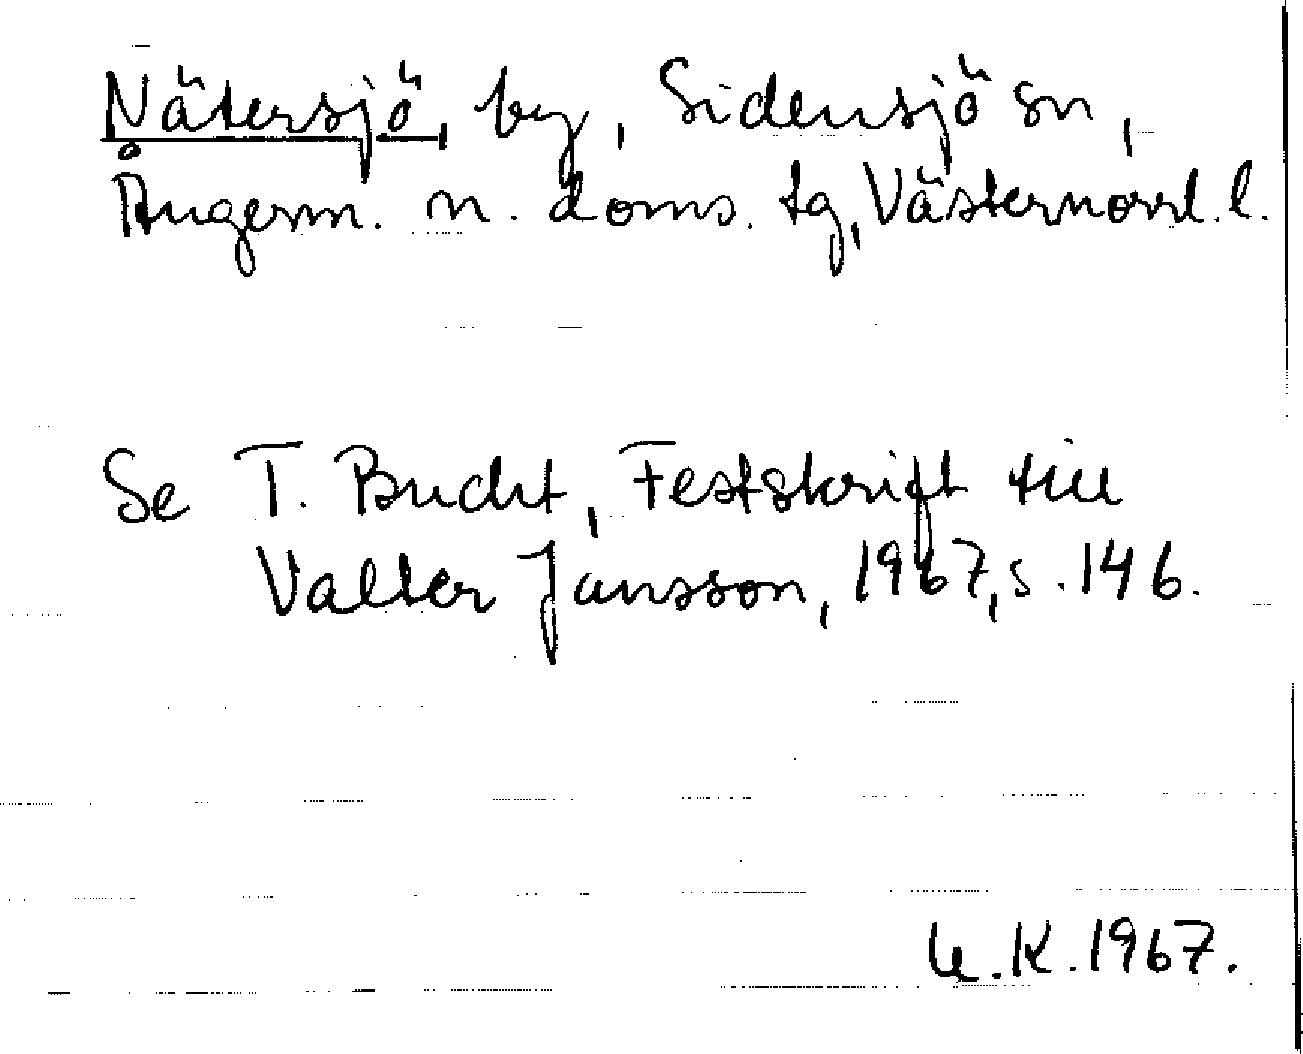 Nätersjö, by, Sidensjö sn,
Ångerm. n. doms. tg, Västernorrl. l.
Se T. Bucht, Festskrift till
Valter Jansson, 1967, s. 146.
U.K. 1967.